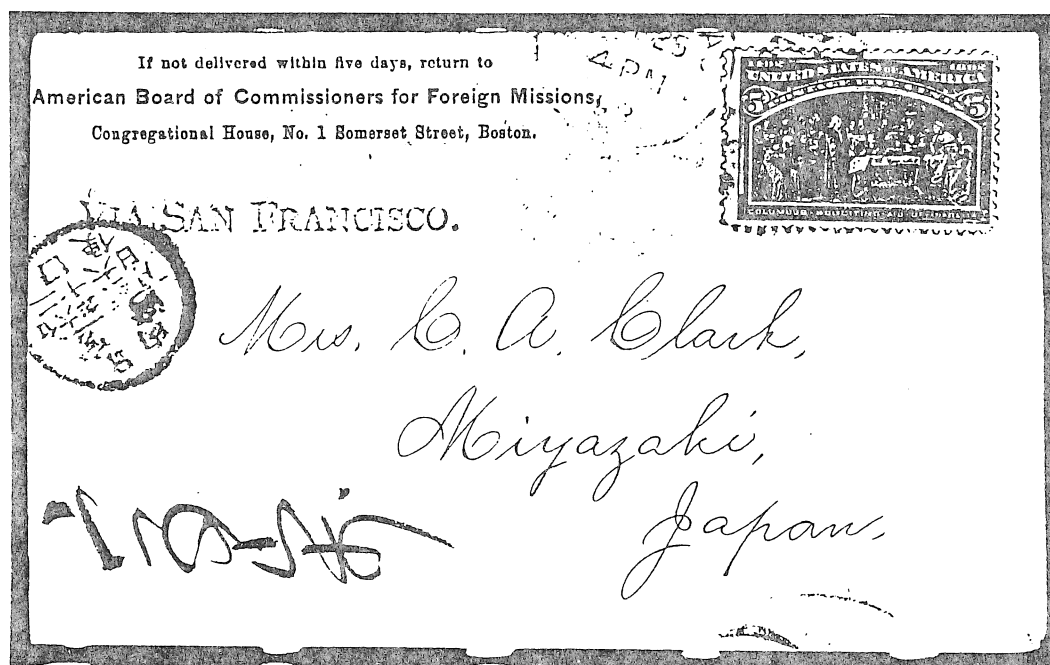 If not delivered within five days, return to
American Board of Commissioners for Foreign Missions,
Congregational House, No. 1 Somerset Street, Boston.
4 PM
UNITED STATES OF AMERICA
5 5
VIA SAN FRANCISCO.
Mrs. C. A. Clark,
Miyazaki,
Japan.